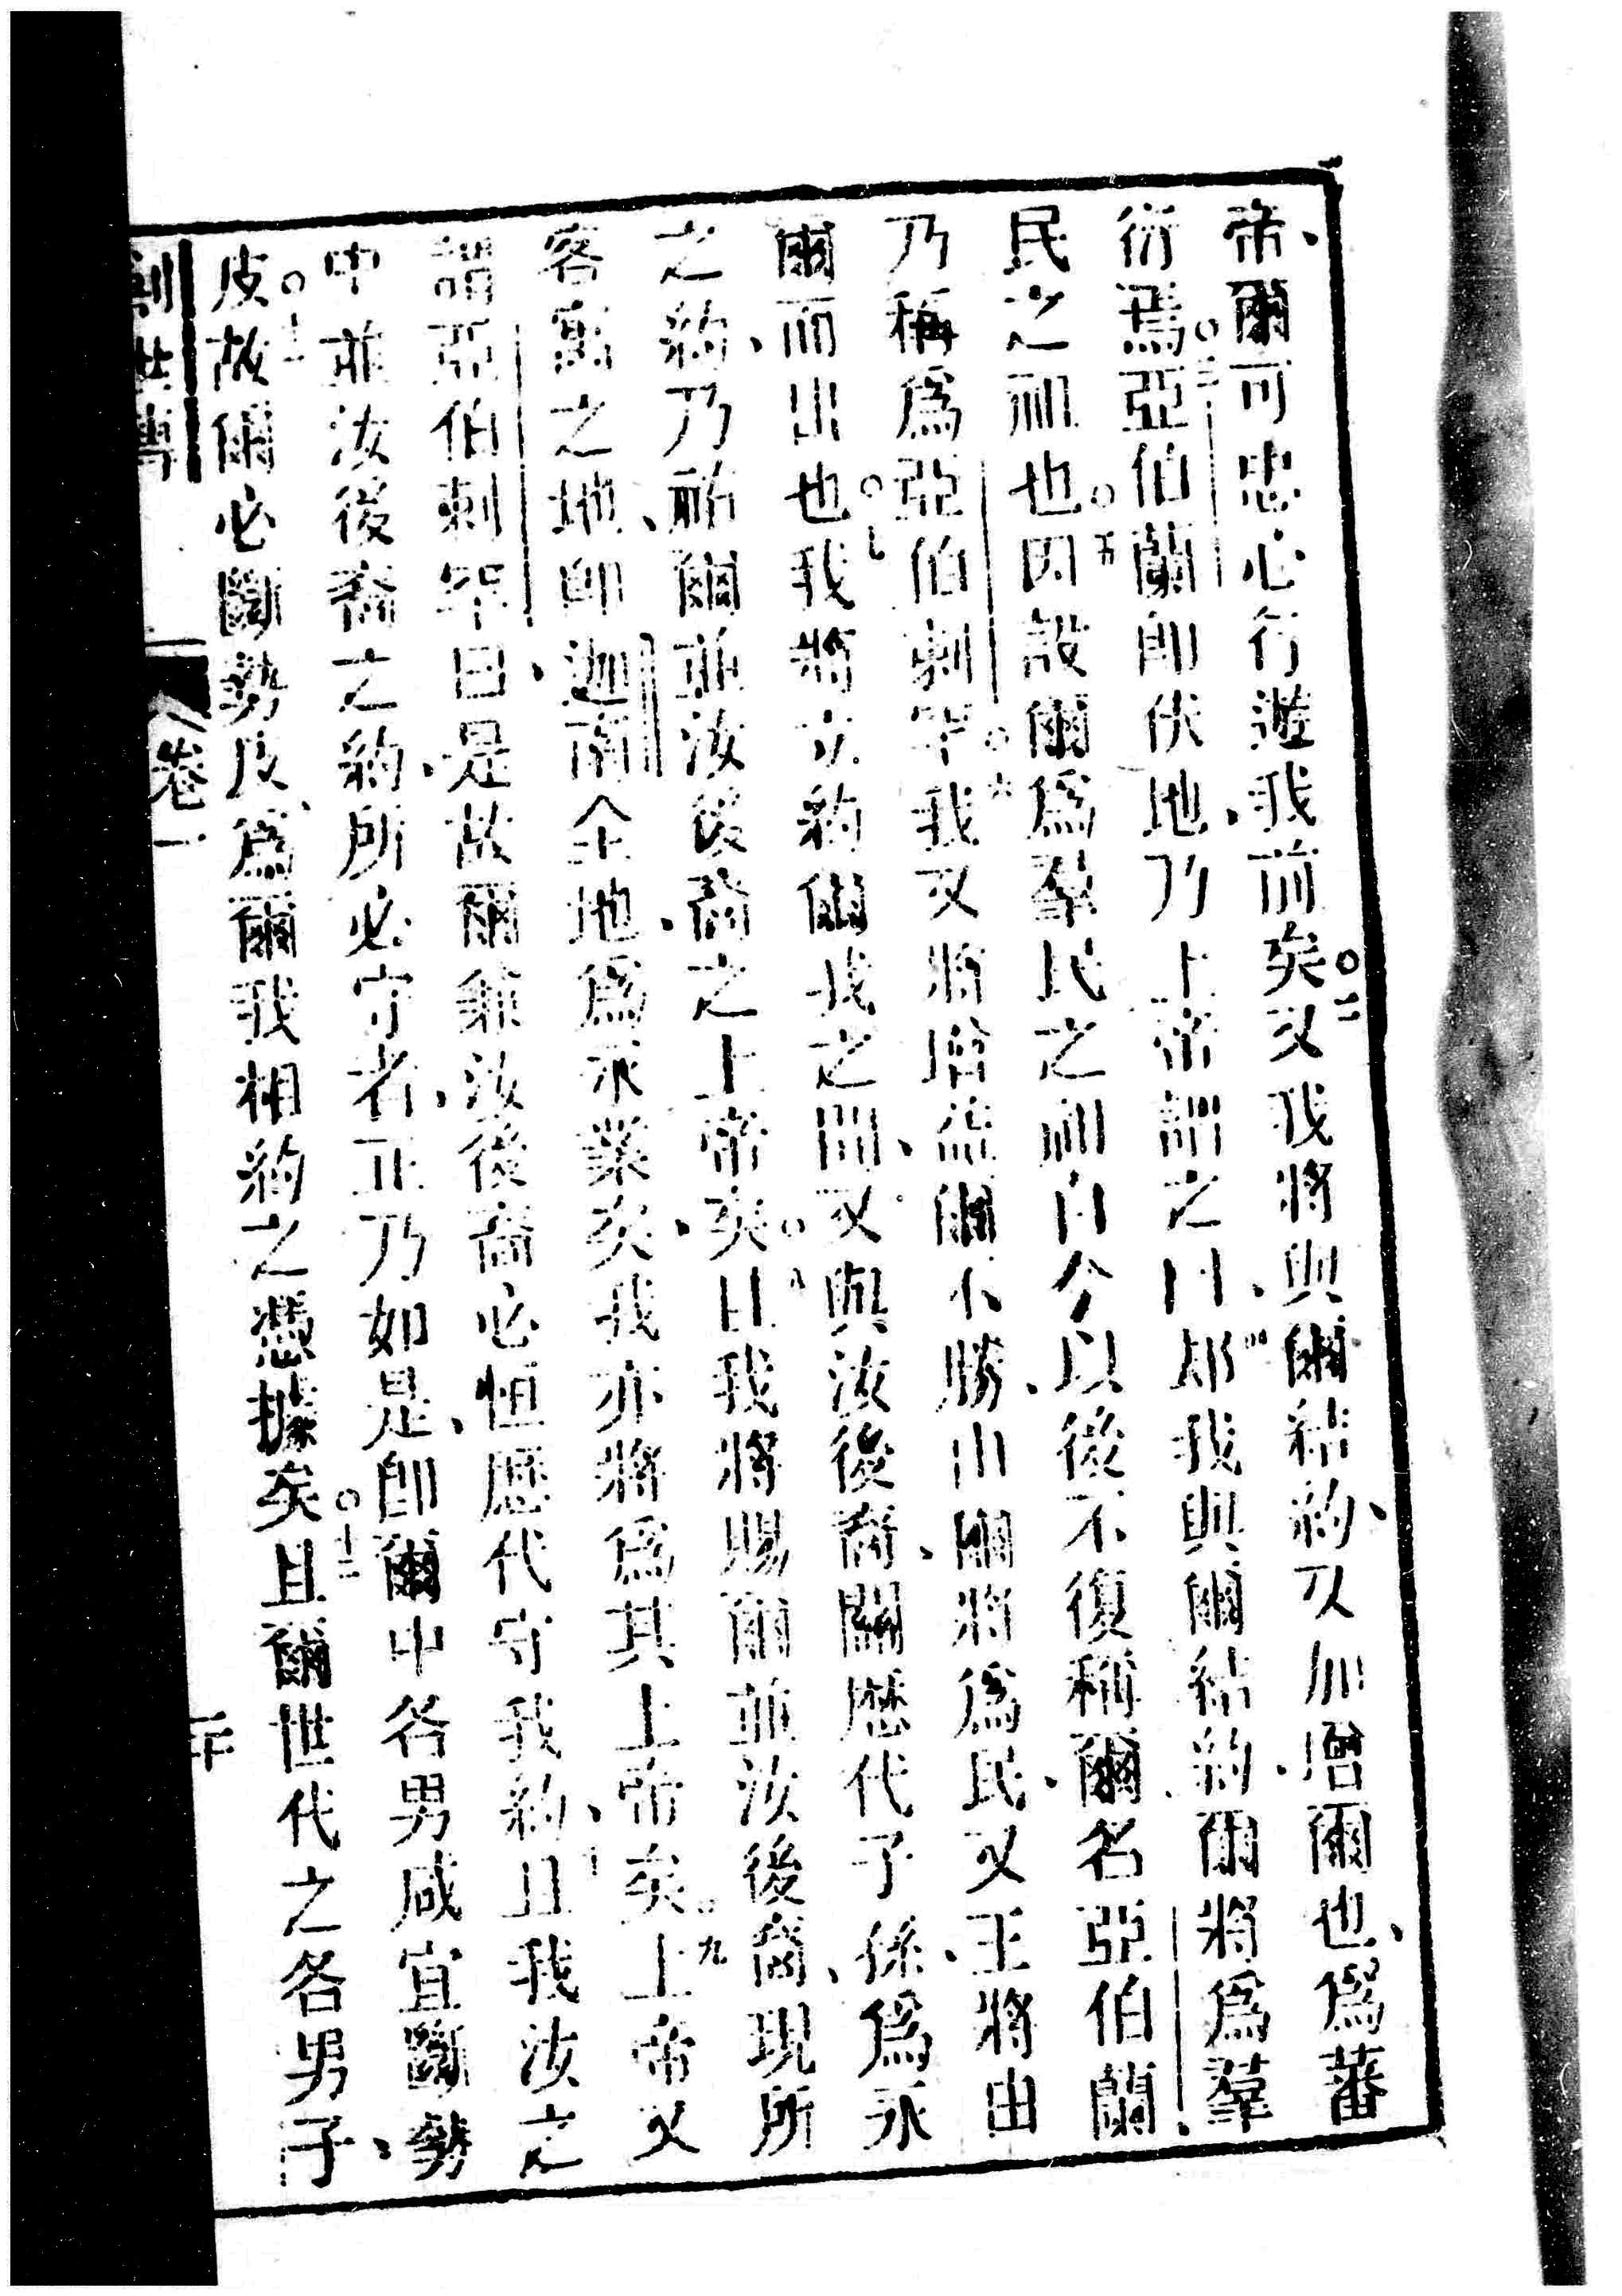 帝、爾可忠心行遊我前矣。二又我將與爾結約、又加增爾也、爲蕃
衍焉。三亞伯蘭即伏地、乃上帝謂之曰、四却我與爾結約、爾將爲羣
民之祖也。五因設爾爲羣民之祖自今以後、不復稱爾名亞伯蘭、
乃稱爲亞伯剌罕。六我又將增益爾不勝、由爾將爲民、又王將由
爾而出也。七我將立約爾我之間、又與汝後裔、關歷代子孫、爲永
之約、乃祐爾並汝後裔之上帝矣。八且我將賜爾並汝後裔、現所
客寓之地、即迦南全地、爲永業矣、我亦將爲其上帝矣。九上帝又
謂亞伯剌罕曰、是故爾兼汝後裔、必恒歷代守我約、十且我汝之
中並汝後裔之約、所必守者、正乃如是、即爾中各男咸宜斷勢
皮。十一故爾必斷勢皮、爲爾我相約之憑據矣。十二且爾世代之各男子、
創世傳 卷一 二十